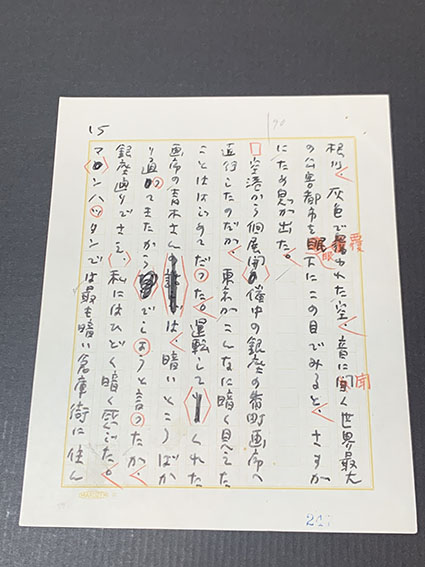 15
根川、灰色で覆われた空、音に聞く世界最大
の公害都市を眼下にこの目でみると、さすが
にため息が出た。
空港から個展開催中の銀座の番町画廊へ
直行したのだが、東京がこんなに暗く見えた
ことははじめてだった。運転してくれた
画廊の青木さんは、暗いところばか
り通ってきたからでしょうと言ったが、
銀座通りでさえ、私にはひどく暗く感じた。
マンハッタンでは最も暗い倉庫街に住ん
覆
眼
聞